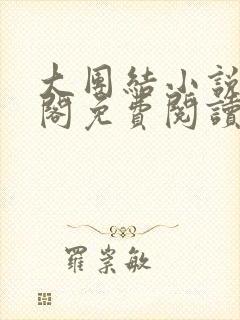 大團結小說
閣免費閱讀
羅崇敏